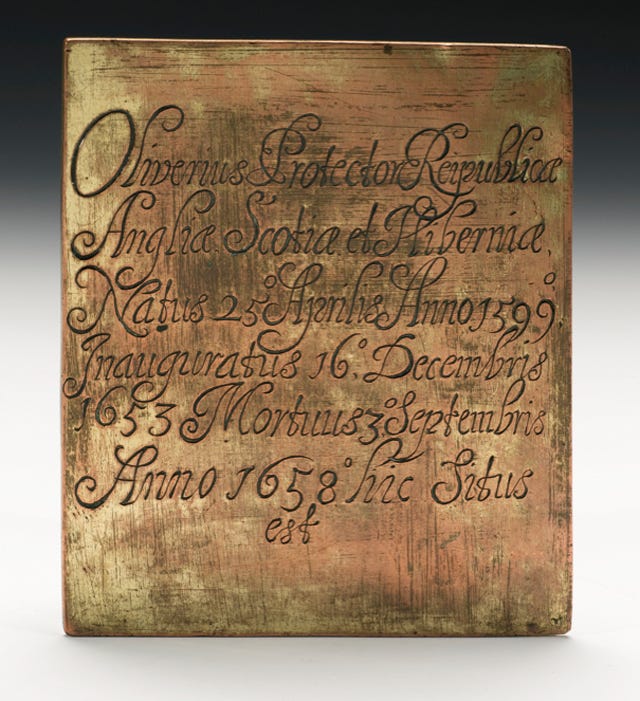 Oliverius Protector Reipublicæ
Angliæ Scotiæ et Hiberniæ.
Natus 25° Aprilis Anno 1599°
Inauguratus 16°. Decembris
1653 Mortuus 3° Septembris
Anno 1658° hic Situs
est